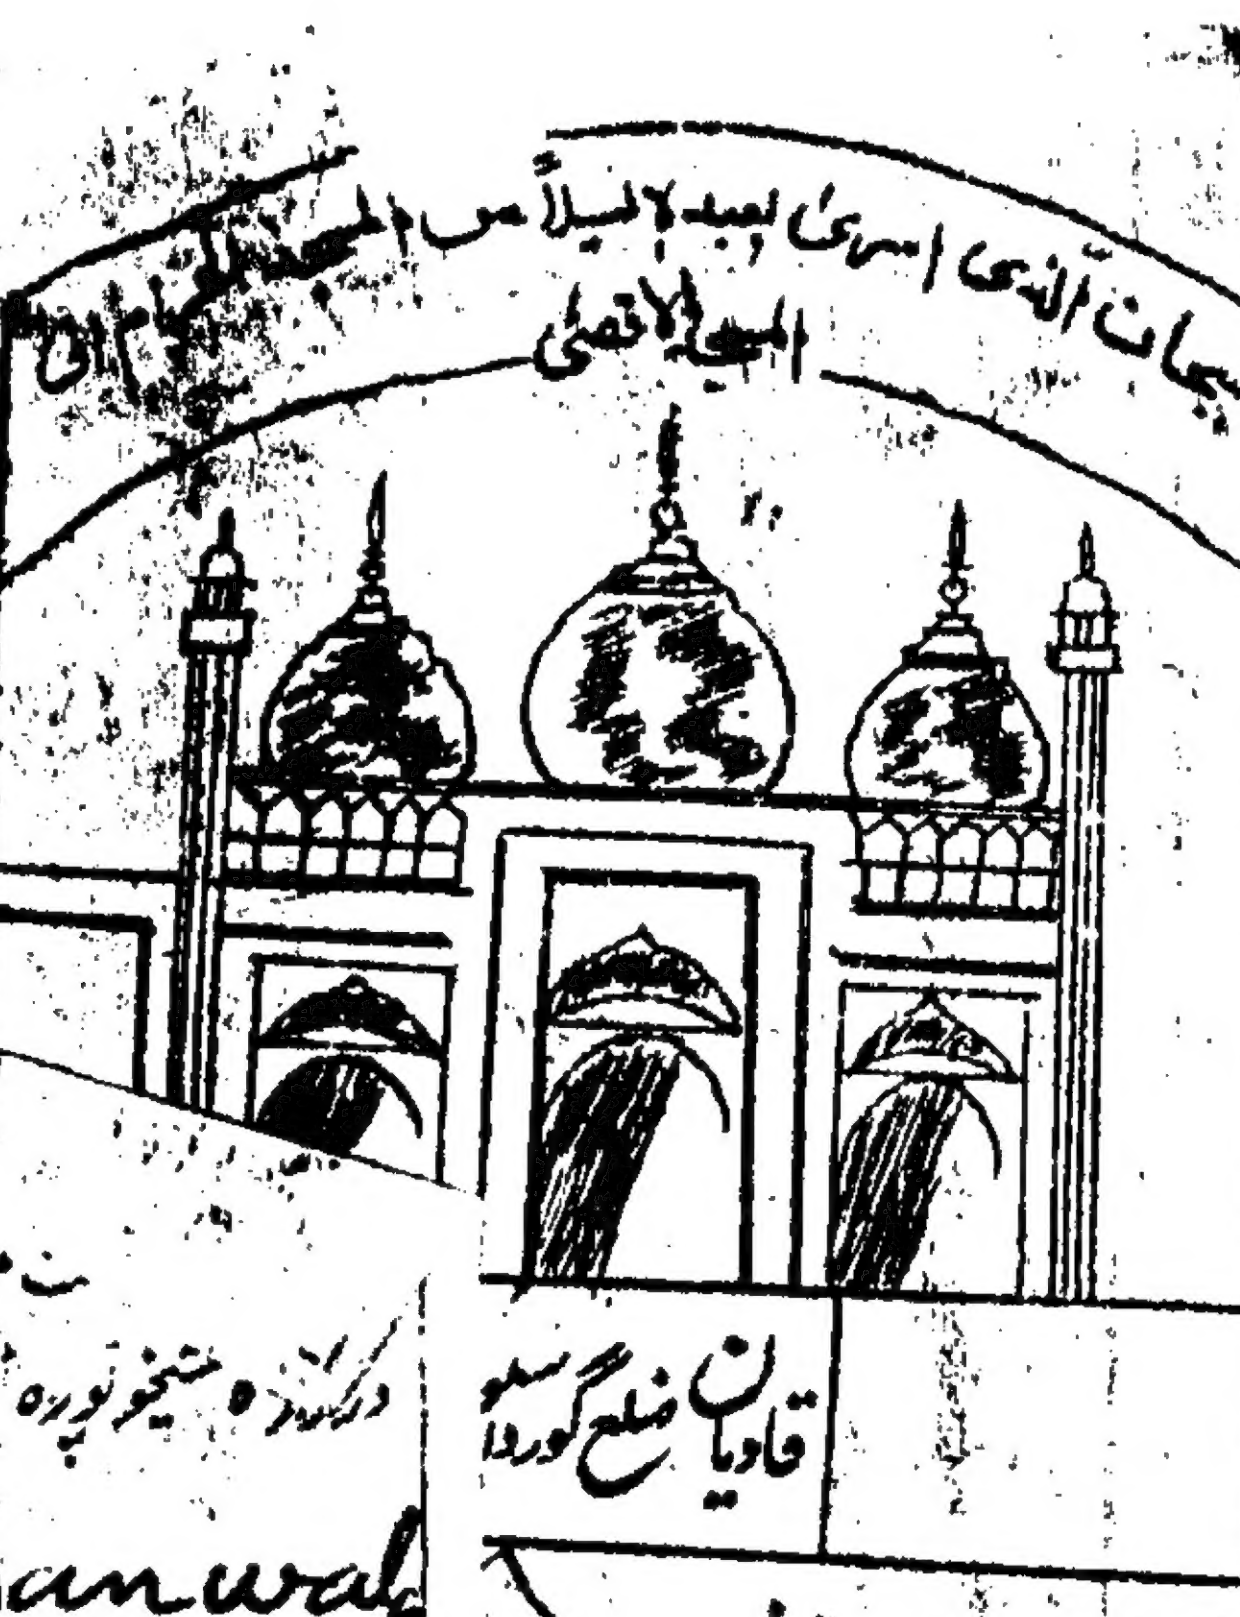 سبحان الّذی اسریٰ بعبدہٖ لیلاً من المسجد الحرام الی
المسجد الاقصیٰ
قادیان ضلع گورداسپور
شیخوپورہ
anwala